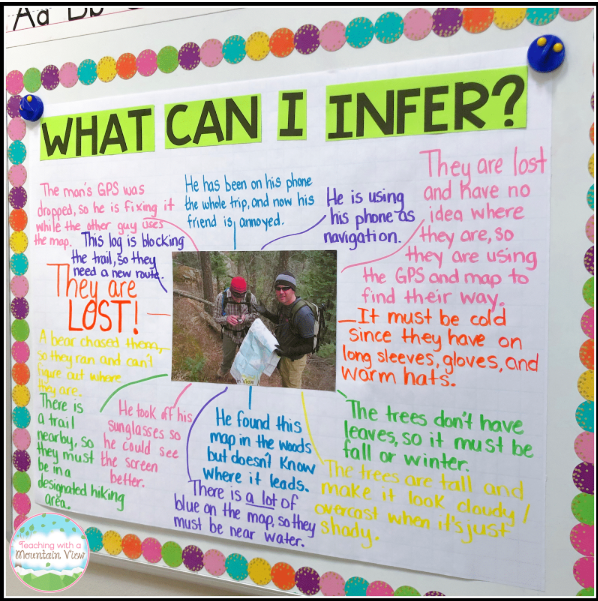 Aa Bb
WHAT CAN I INFER?
The man's GPS was
dropped, so he is fixing it
while the other guy uses
the map.
He has been on his phone
the whole trip, and now his
friend is annoyed.
He is using
his phone as
navigation.
They are lost
and have no
idea where
they are, so
they are using
the GPS and map to
find their way.
This log is blocking
the trail, so they
need a new route.
They are
LOST!
It must be cold
since they have on
long sleeves, gloves, and
warm hats.
A bear chased them,
so they ran and can't
figure out where
they are.
There is
a trail
nearby, so
they must
be in a
designated hiking
area.
He took off his
sunglasses so
he could see
the screen
better.
He found this
map in the woods
but doesn't know
where it leads.
There is a lot of
blue on the map, so they
must be near water.
The trees don't have
leaves, so it must be
fall or winter.
The trees are tall and
make it look cloudy/
overcast when it's just
shady.
Teaching with a
Mountain View